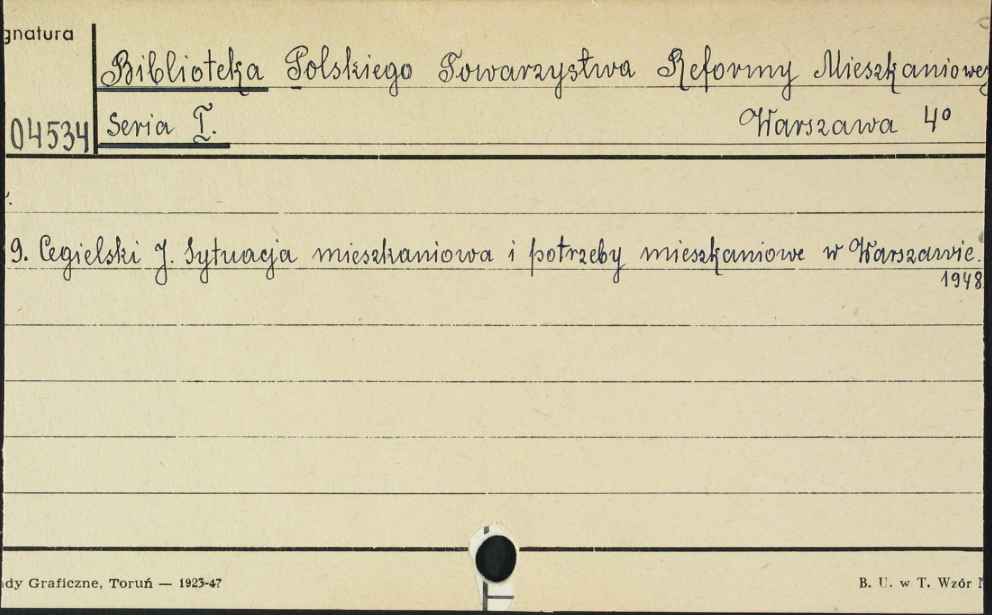 gnatura
Biblioteka Polskiego Towarzystwa Reformy Mieszkaniowej
04534 Seria I. Warszawa 4º
9. Cegielski J. Sytuacja mieszkaniowa i potrzeby mieszkaniowe w Warszawie.
1948
dy Graficzne, Toruń — 1923-47 B. U. w T. Wzór